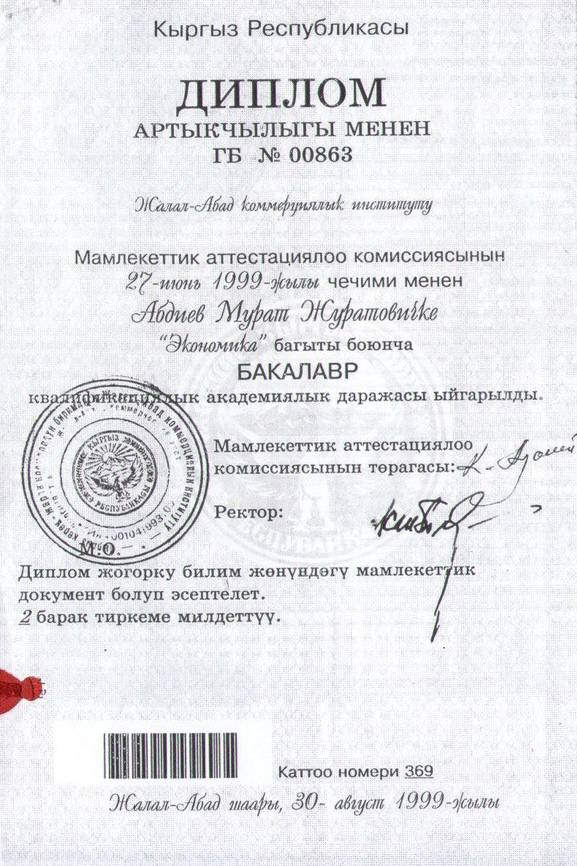 Кыргыз Республикасы
ДИПЛОМ
АРТЫКЧЫЛЫГЫ МЕНЕН
ГБ № 00863
Жалал-Абад коммерциялык институту
Мамлекеттик аттестациялоо комиссиясынын
27-июнь 1999-жылы чечими менен
Абдиев Мурат Журатовичке
"Экономика" багыты боюнча
БАКАЛАВР
квалификациялык академиялык даражасы ыйгарылды.
Мамлекеттик аттестациялоо
комиссиясынын төрагасы:
Ректор:
М.О.
Диплом жогорку билим жөнүндөгү мамлекеттик
документ болуп эсептелет.
2 барак тиркеме милдеттүү.
Каттоо номери 369
Жалал-Абад шаары, 30- август 1999-жылы